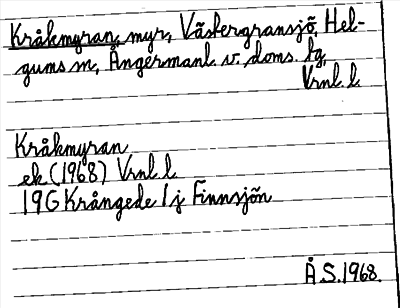 Kråkmyran, myr, Västergransjö, Hel-
gums sn, Ångermanl. v. doms. tg,
Vrnl. l.
Kråkmyran
ek (1968) Vrnl. l
19G Krångede 1 j Finnsjön
Å.S. 1968.